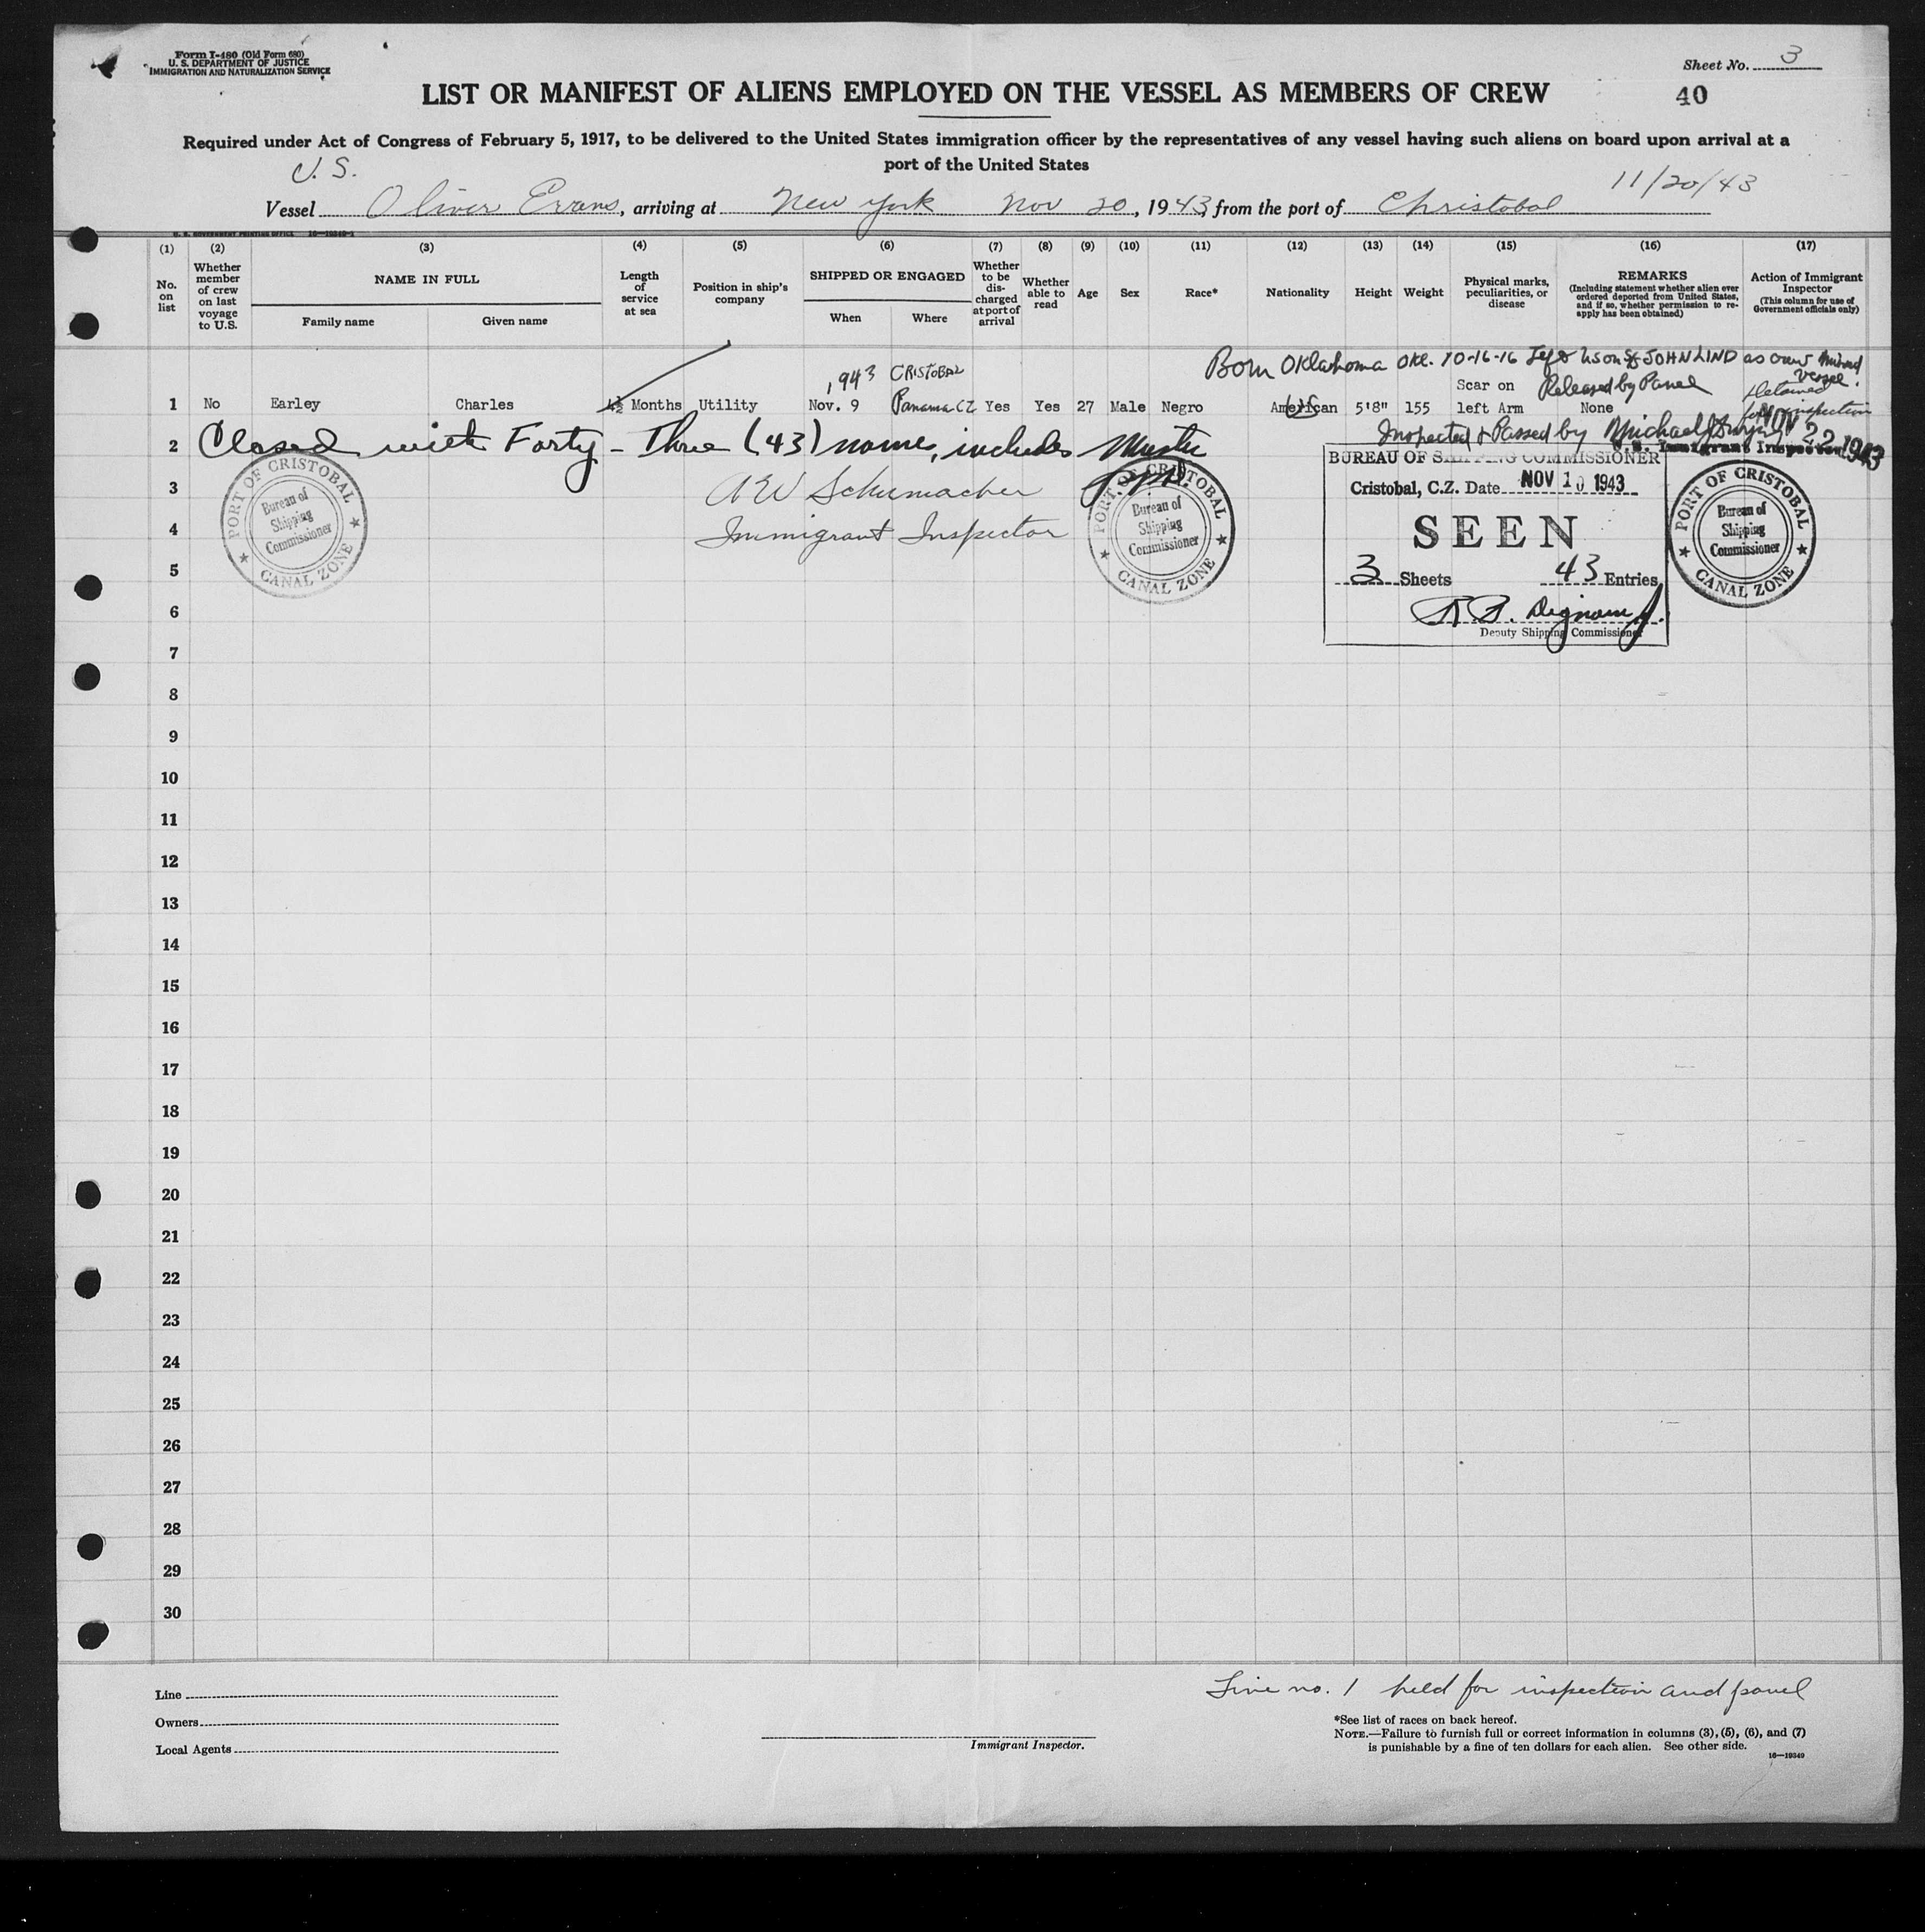 Form I-480 (Old Form 680)
U. S. DEPARTMENT OF JUSTICE
IMMIGRATION AND NATURALIZATION SERVICE
Sheet No. 3
LIST OR MANIFEST OF ALIENS EMPLOYED ON THE VESSEL AS MEMBERS OF CREW
40
Required under Act of Congress of February 5, 1917, to be delivered to the United States immigration officer by the representatives of any vessel having such aliens on board upon arrival at a
port of the United States
U. S.
11/20/43
Vessel Oliver Evans, arriving at New York Nov 20, 1943, from the port of Christobal
U. S. GOVERNMENT PRINTING OFFICE 16—19349-1
(1) (2) (3) (4) (5) (6) (7) (8) (9) (10) (11) (12) (13) (14) (15) (16) (17)
No. on list
Whether member of crew on last voyage to U.S.
NAME IN FULL
Family name
Given name
Length of service at sea
Position in ship's company
SHIPPED OR ENGAGED
When
Where
Whether to be discharged at port of arrival
Whether able to read
Age
Sex
Race*
Nationality
Height
Weight
Physical marks, peculiarities, or disease
REMARKS
(Including statement whether alien ever ordered deported from United States, and if so, whether permission to reapply has been obtained)
Action of Immigrant Inspector
(This column for use of Government officials only)
Born Oklahoma Okl. 10-16-16 JOHN LIND as crew
vessel.
1943 CRISTOBAL
Scar on Released by Panel Detained
1 No Earley Charles 4½ Months Utility Nov. 9 Panama CZ Yes Yes 27 Male Negro American 5'8" 155 left Arm None for inspection
2 Closed with Forty-Three (43) names, includes Master
Inspected & Passed by Michael NOV 22 1943
U.S. Immigrant Inspector
3 A W Schumacher
4 Immigrant Inspector
PORT OF CRISTOBAL
Bureau of
Shipping
Commissioner
CANAL ZONE
PORT OF CRISTOBAL
Bureau of
Shipping
Commissioner
CANAL ZONE
BUREAU OF SHIPPING COMMISSIONER
Cristobal, C.Z. Date NOV 10 1943
SEEN
3 Sheets 43 Entries
Deputy Shipping Commissioner
PORT OF CRISTOBAL
Bureau of
Shipping
Commissioner
CANAL ZONE
5
6
7
8
9
10
11
12
13
14
15
16
17
18
19
20
21
22
23
24
25
26
27
28
29
30
Line no. 1 held for inspection and panel
Line
Owners
Local Agents
Immigrant Inspector.
*See list of races on back hereof.
NOTE.—Failure to furnish full or correct information in columns (3), (5), (6), and (7)
is punishable by a fine of ten dollars for each alien. See other side.
16—19349